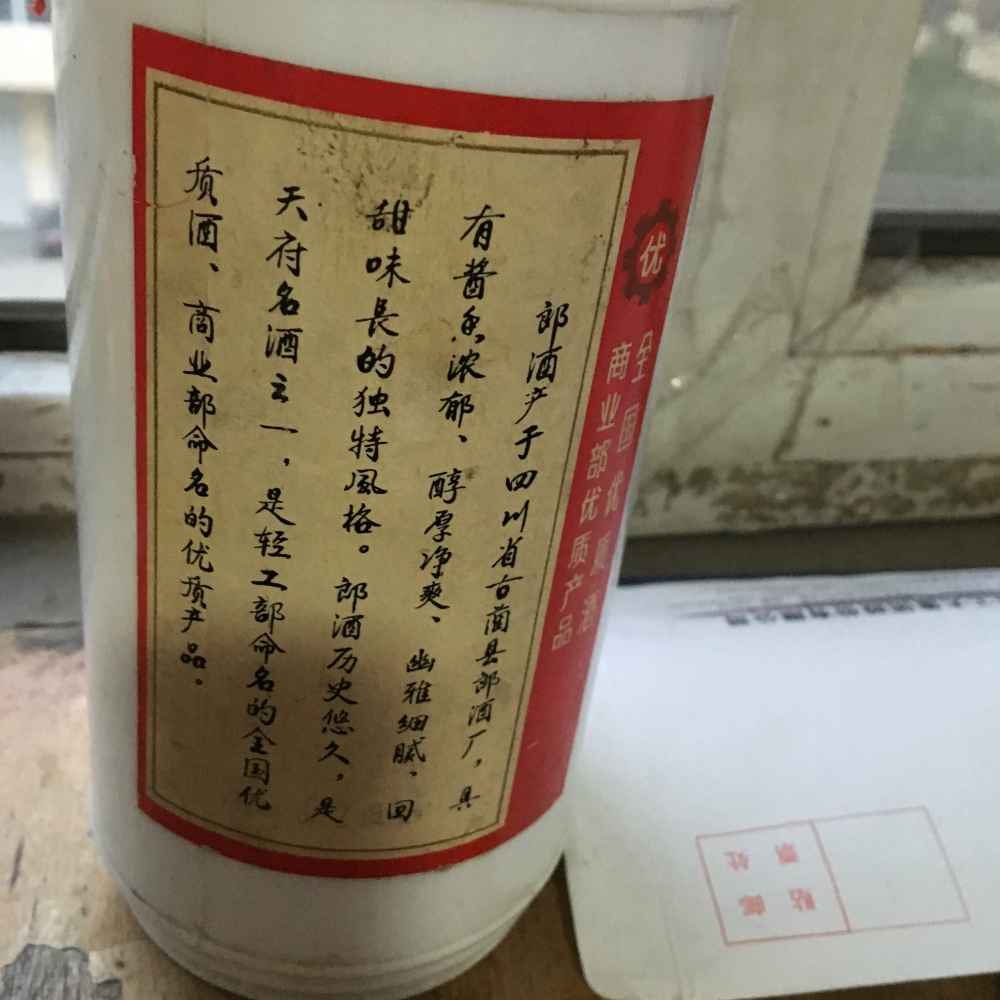 郎酒产于四川省古蔺县郎酒厂，具
有酱香浓郁、醇厚净爽、幽雅细腻、回
甜味長的独特風格。郎酒历史悠久，是
天府名酒之一，是轻工部命名的全国优
质酒、商业部命名的优质产品。
优
全国优质酒
商业部优质产品
贴邮
票处